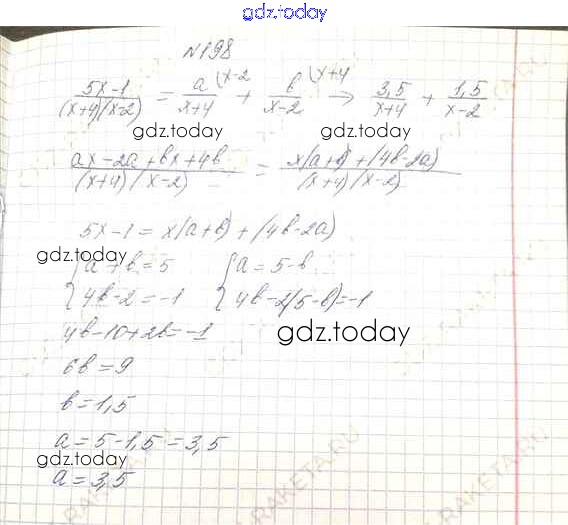 gdz.today
№198
5x-1/(x+4)(x-2) = a/x+4 (x-2 + b/x-2 (x+4 → 3,5/x+4 + 1,5/x-2
gdz.today gdz.today
ax-2a+bx+4b/(x+4)(x-2) = x(a+b)+(4b-2a)/(x+4)(x-2)
5x-1=x(a+b)+(4b-2a)
gdz.today
{a+b=5 {a=5-b
{4b-2=-1 {4b-2(5-b)=-1
4b-10+2b=-1
gdz.today
6b=9
b=1,5
a=5-1,5=3,5
gdz.today
a=3,5
RAKETA.RU
RAKETA.RU